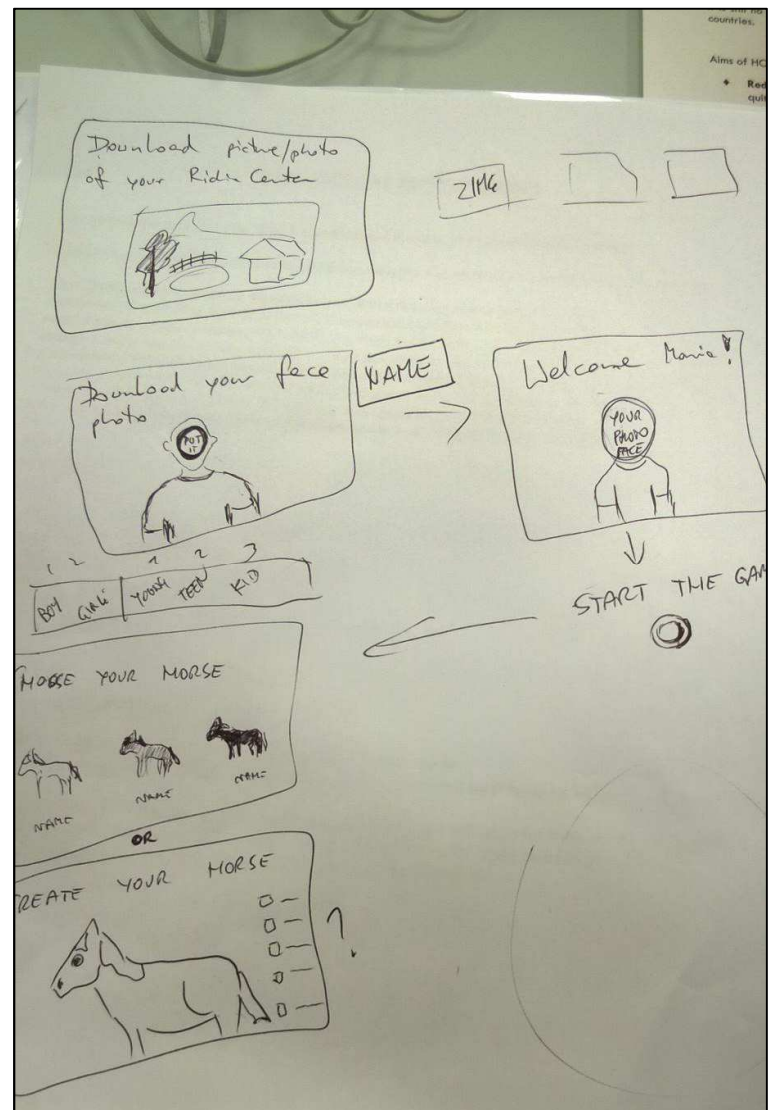 countries.
Aims of HC
Red
quit
Download picture/photo
of your Ridin Center
Download your face
photo
PUT
IT
NAME
Welcome Maria!
YOUR
PHOTO
FACE
1 2 1 2 3
BOY GIRL YOUNG TEEN KID
START THE GAM
HOOSE YOUR HORSE
NAME
NAME
NAME
OR
REATE YOUR HORSE
?